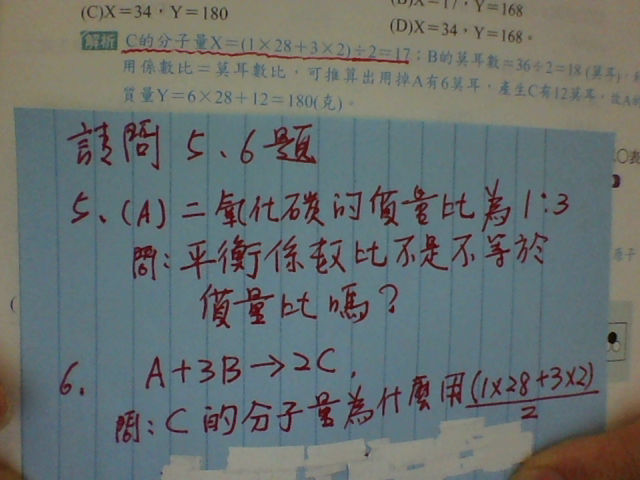 (C)X=34,Y=180
(B)X=17,Y=168
(D)X=34,Y=168。
解析 C的分子量X=(1×28+3×2)÷2=17;B的莫耳數=36÷2=18(莫耳),
用係數比=莫耳數比,可推算出用掉A有6莫耳,產生C有12莫耳,故A的
質量Y=6×28+12=180(克)。
請問 5、6題
5、(A) 二氧化碳的質量比為1:3
問:平衡係數比不是不等於
質量比嗎?
6. A+3B→2C,
問:C的分子量為什麼用(1×28+3×2)
2